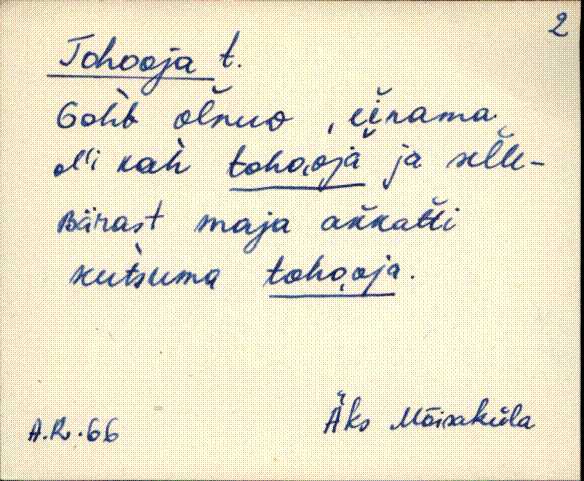 2
Tohooja t.
Goh̀b olnuo, eìnama
oĺi kah̀ tohooja ja selle-
Bärast maja akkatti
kutsuma tohooja.
A.R. 66
Äks Mõisaküla